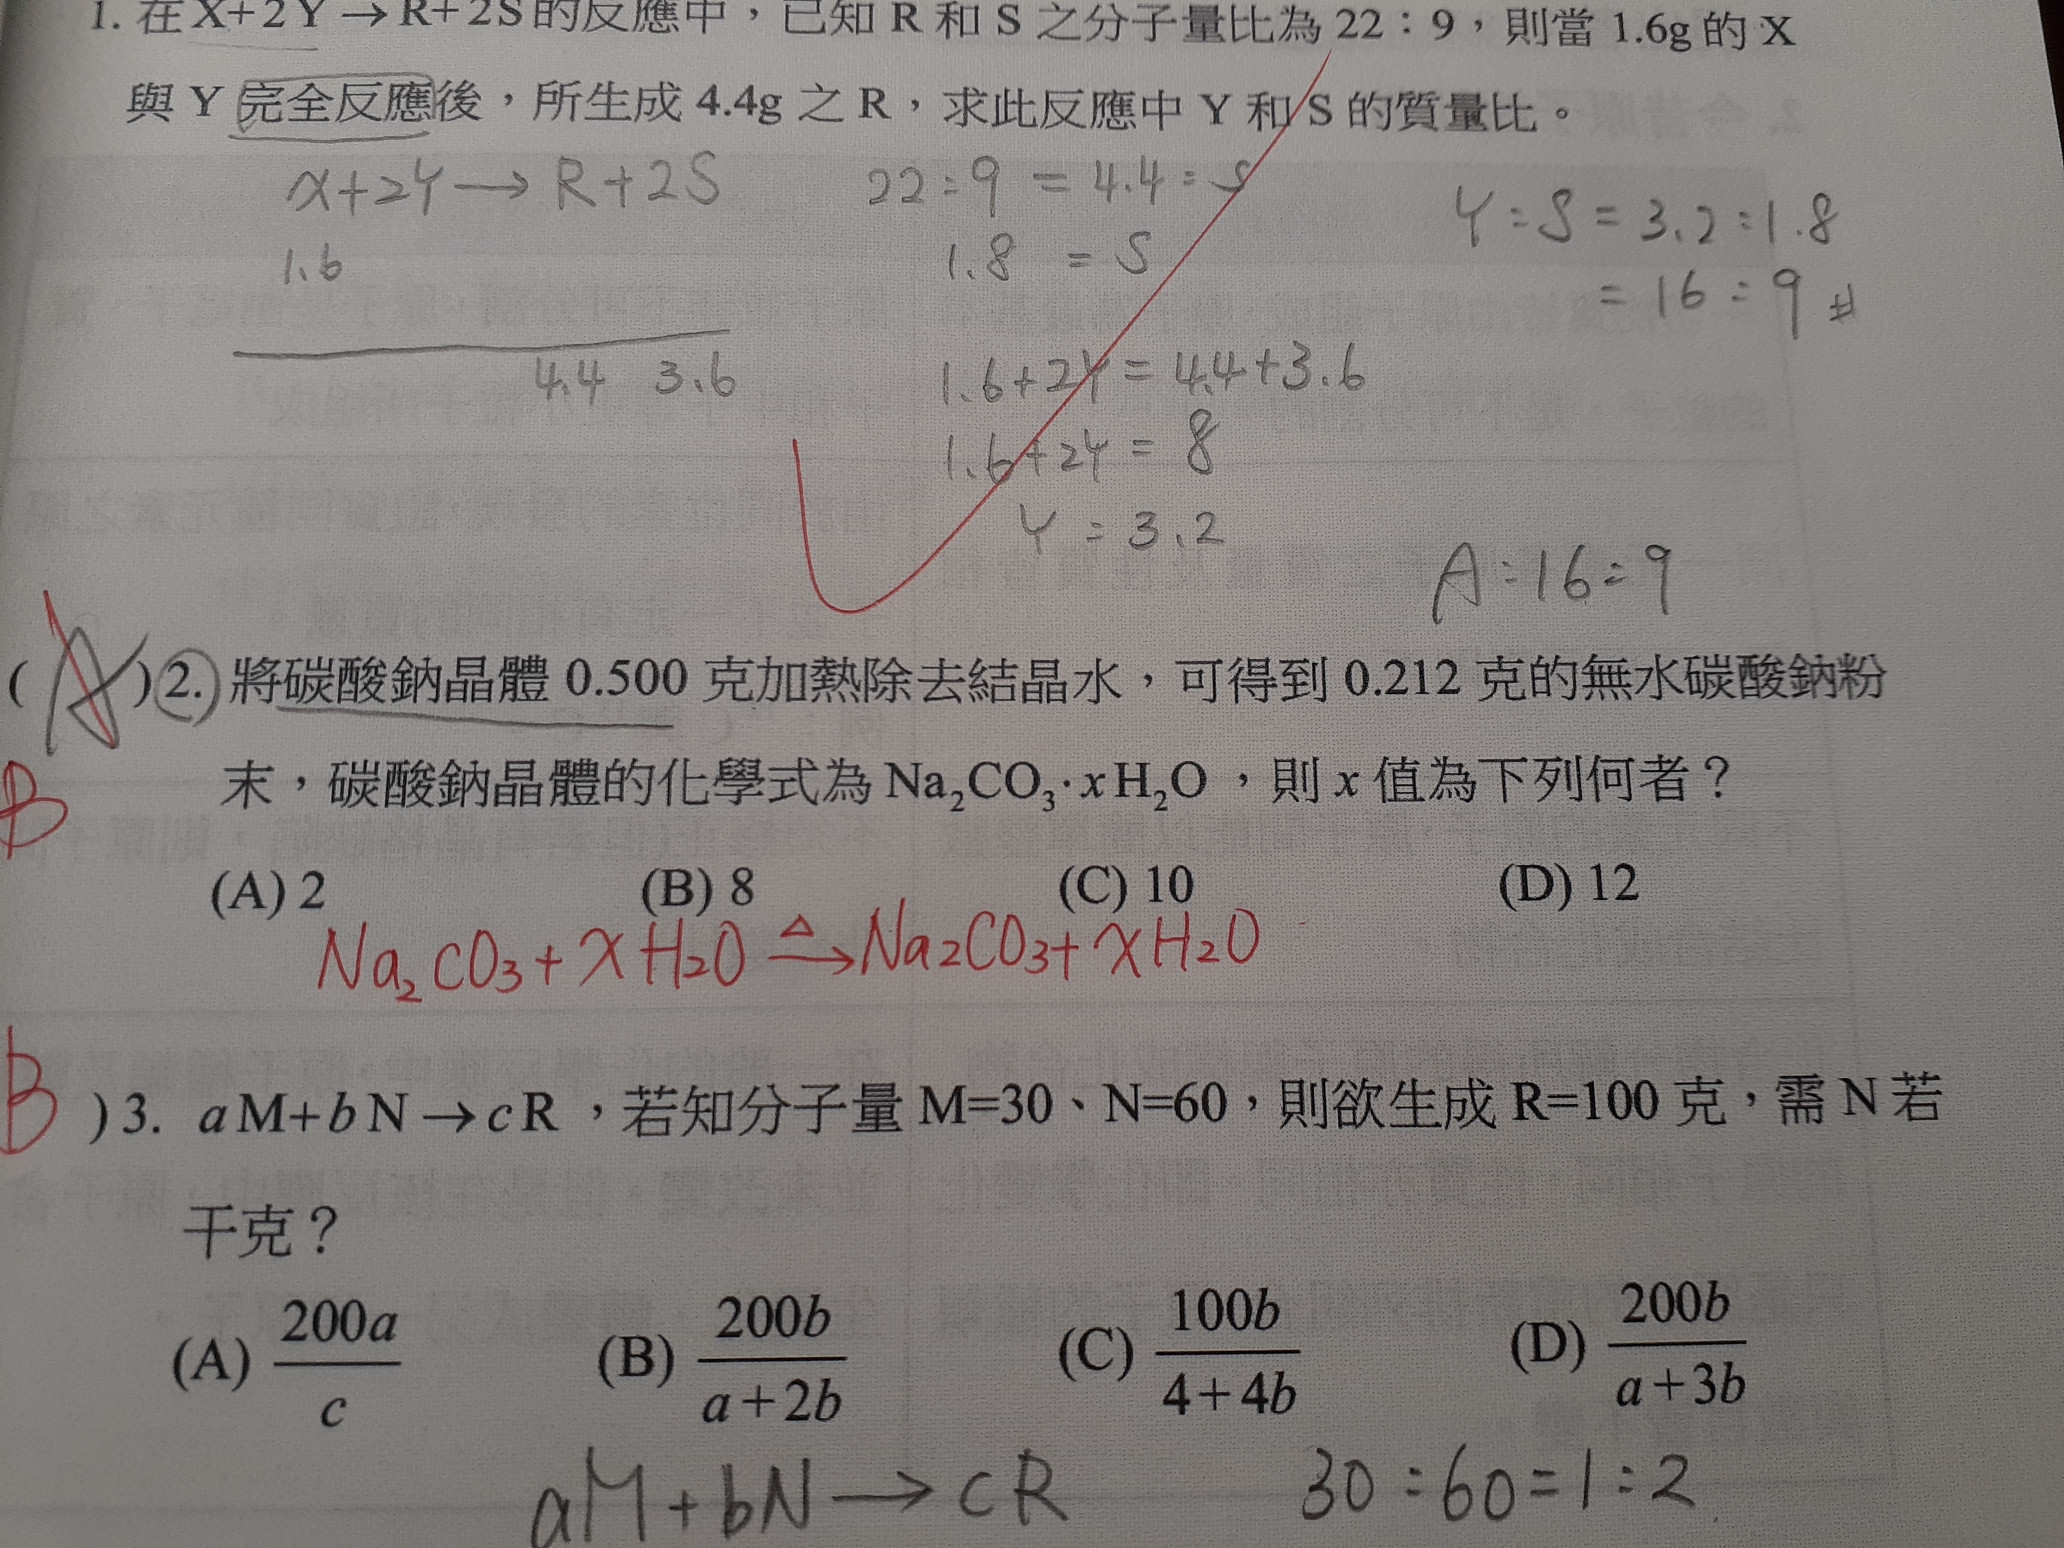 1. 在 X+2Y → R+2S 的反應中，已知 R 和 S 之分子量比為 22：9，則當 1.6g 的 X
與 Y 完全反應後，所生成 4.4g 之 R，求此反應中 Y 和 S 的質量比。
X+2Y → R+2S
1.6
4.4 3.6
22:9 = 4.4:S
1.8 = S
1.6+2Y = 4.4+3.6
1.6+2Y = 8
Y = 3.2
Y:S = 3.2:1.8
= 16:9 #
A:16:9
( A )2. 將碳酸鈉晶體 0.500 克加熱除去結晶水，可得到 0.212 克的無水碳酸鈉粉
B
末，碳酸鈉晶體的化學式為 Na₂CO₃·xH₂O ，則 x 值為下列何者？
(A) 2 (B) 8 (C) 10 (D) 12
Na₂CO₃+xH₂O △→ Na₂CO₃+xH₂O
B )3. aM+bN→cR ，若知分子量 M=30、N=60，則欲生成 R=100 克，需 N 若
干克？
(A) 200a/c (B) 200b/a+2b (C) 100b/4+4b (D) 200b/a+3b
aM+bN → cR 30:60=1:2